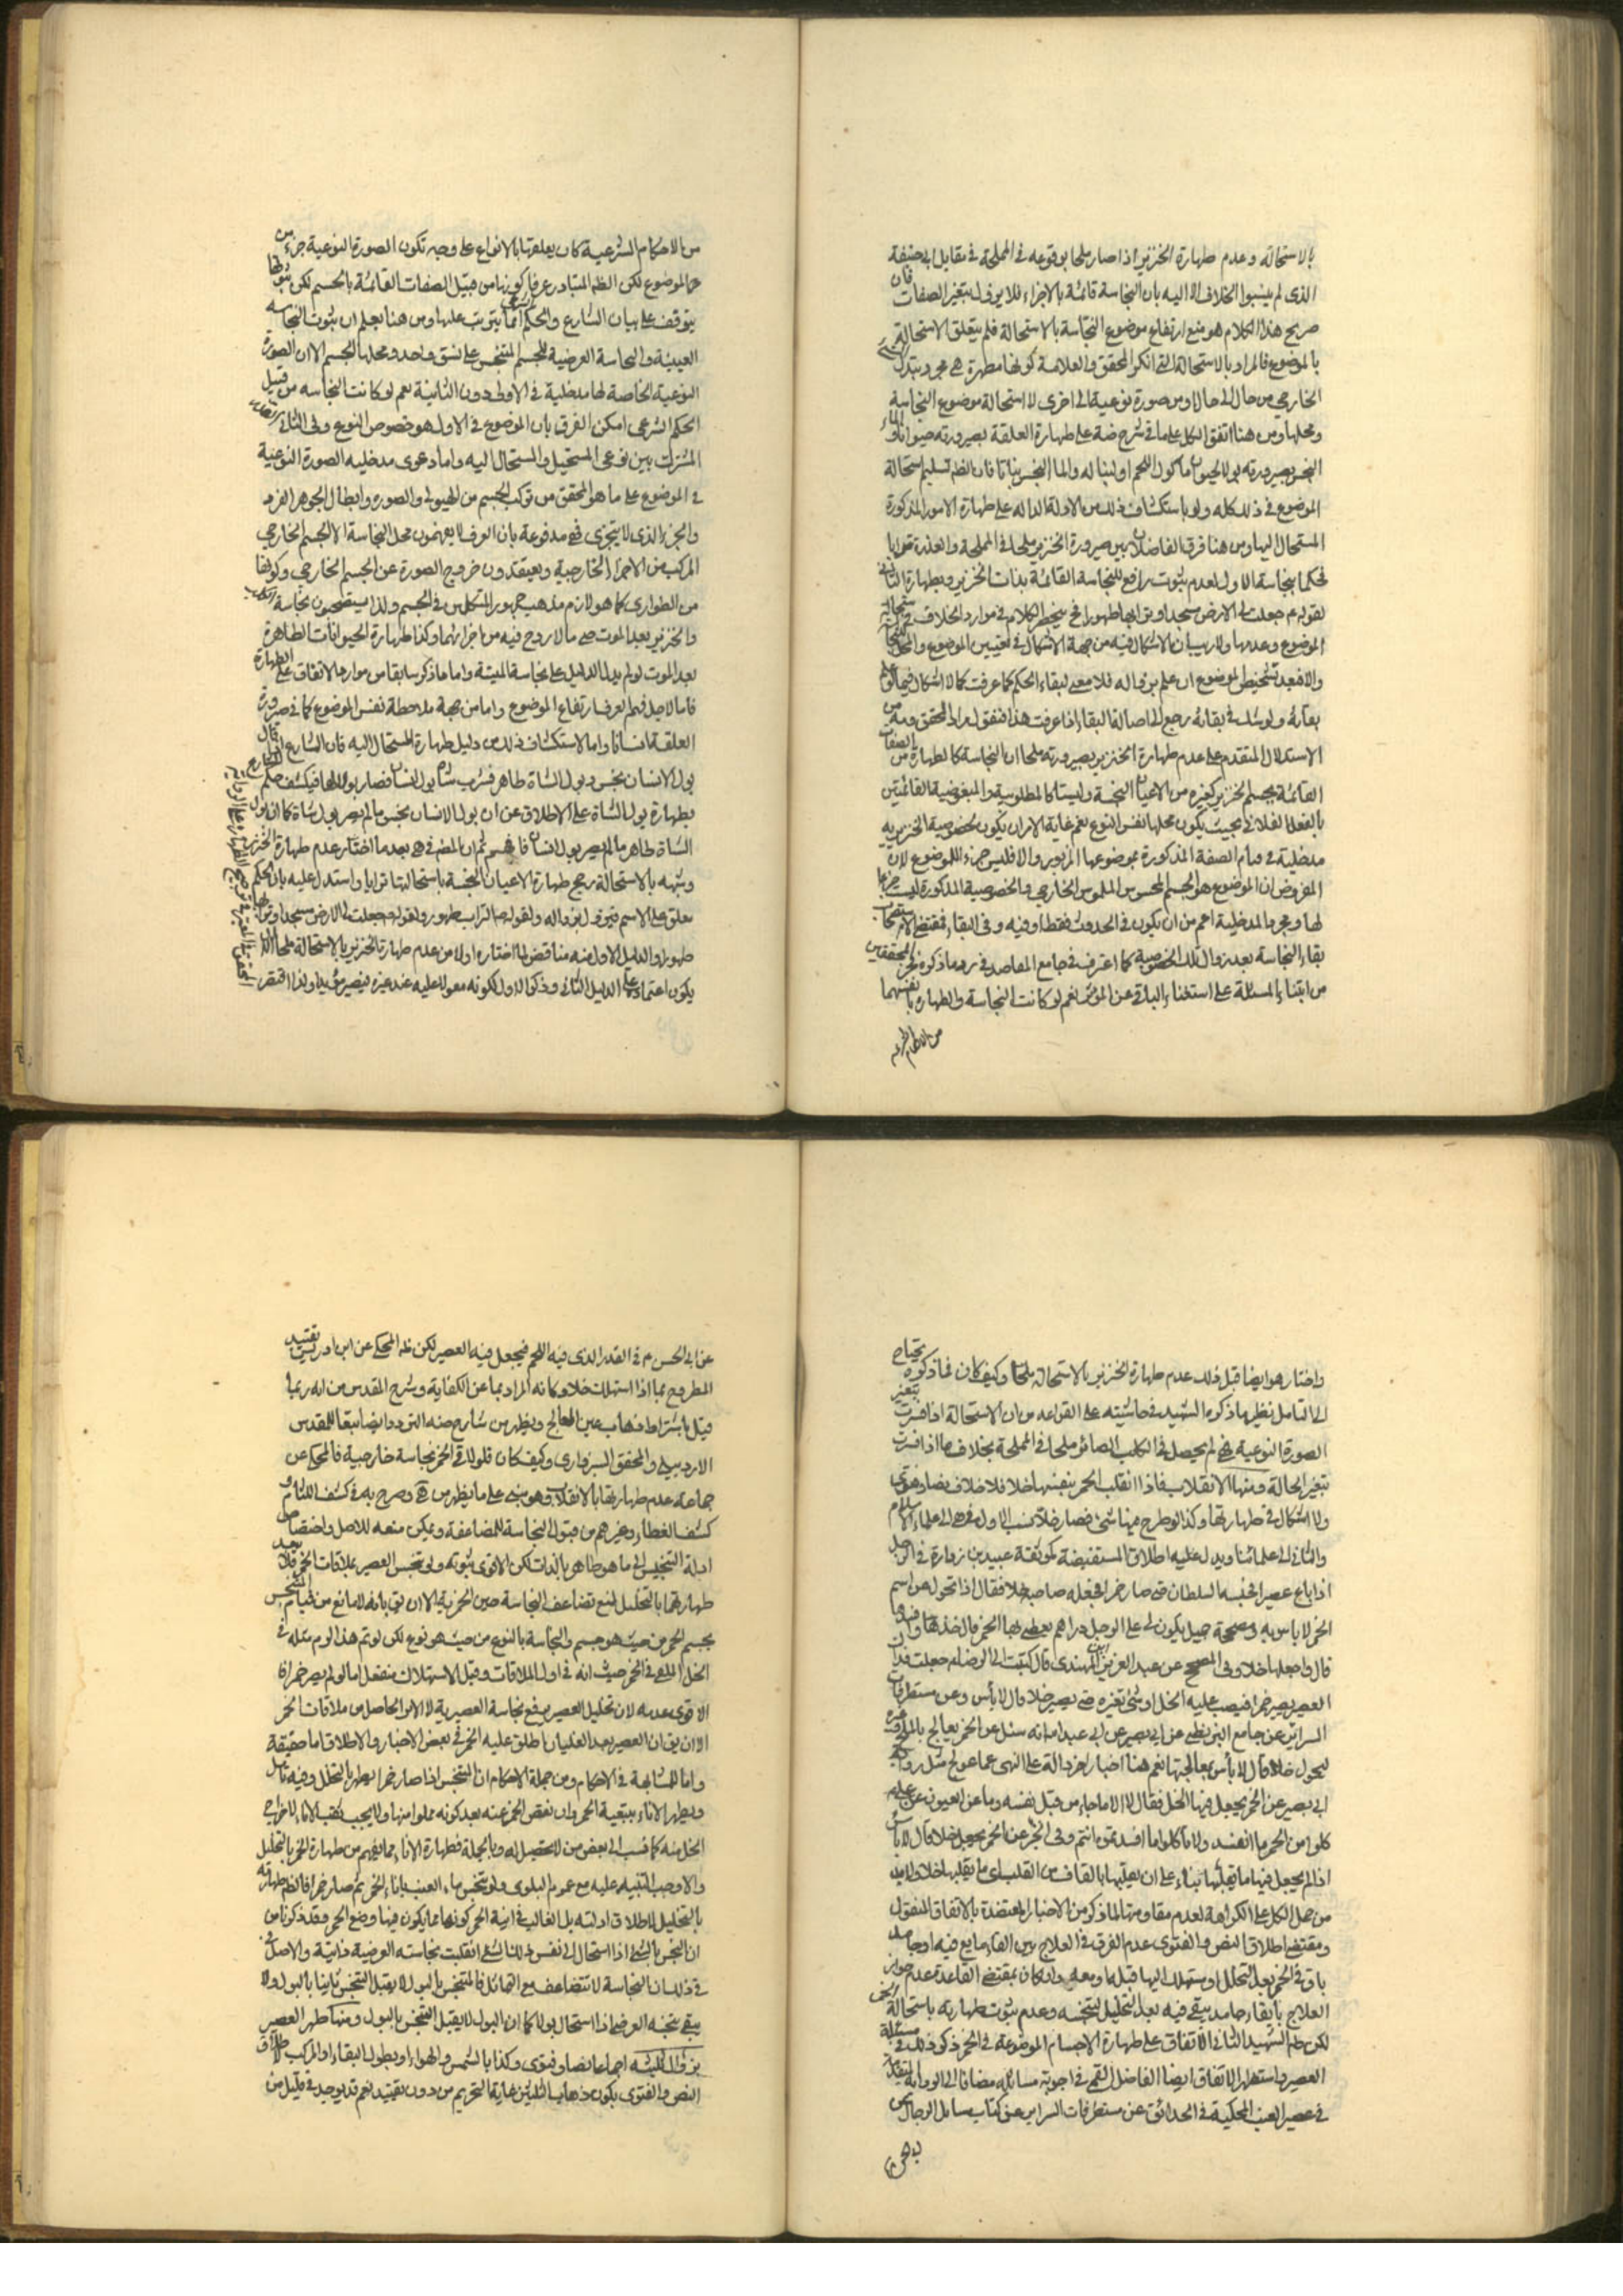 بالاستحالة وعدم طهارة الخنزير اذا صار ملحا بوقوعه في المملحة في مقابل ابي حنيفة
الذي لم ينسبوا الخلاف الا اليه بان النجاسة قائمة بالاجزاء فلا يزول بتغير الصفات فان
صريح هذا الكلام هو منع ارتفاع موضوع النجاسة بالاستحالة فلم يتعلق الاستحالة
بالموضوع فالمراد بالاستحالة التي انكر المحقق والعلامة كونها مطهرة هي مجرد تبدل
الخارجي من حال الى حال او من صورة نوعية الى اخرى لا استحالة موضوع النجاسة
ومحلها ومن هنا اتفق الكل على ما في شرح ضة على طهارة العلقة بصيرورته حيوانا والماء
النجس بصيرورته بولا لحيوان مأكول اللحم او لبنا له والماء النجس نباتا فان الظ تسليم استحالة
الموضوع في ذلك كله ولو باستكشاف ذلك من الادلة الدالة على طهارة الامور المذكورة
المستحال اليها ومن هنا فرق الفاضلان بين صيرورة الخنزير ملحا في المملحة والعذرة ترابا
فحكما بنجاسة الاول لعدم ثبوت رافع للنجاسة القائمة بذات الخنزير وبطهارة الثاني
لقوله ع جعلت لي الارض مسجدا وترابها طهورا فح ينحصر الكلام في موارد الخلاف في استحالة
الموضوع وعدمها ولا ريب ان الاشكال فيه من جهة الاشكال في تعيين الموضوع والمحل للنجاسة
والا فبعد تشخيص الموضوع ان علم بزواله فلا معنى لبقاء الحكم كما عرفت كما لا اشكال فيما لو علم
بقائه ولو شك في بقائه رجع الى اصالة البقاء اذا عرفت هذا فنقول مراد المحقق ومه من
الاستدلال المتقدم على عدم طهارة الخنزير بصيرورته ملحا ان النجاسة كالطهارة من الصفات
القائمة بجسم الخنزير كغيره من الاعيان النجسة وليستا كالمطلوبية والمبغوضية القائمتين
بالفعل الفلاني بحيث يكون محلها نفس النوع نعم غاية الامر ان يكون لخصوصية الخنزيرية
مدخلية في قيام الصفة المذكورة بموضوعها المزبور والا فليس جزء للموضوع لان
المفروض ان الموضوع هو الجسم المحسوس الملموس الخارجي والخصوصية المذكورة ليست جزءا
لها ومجرد المدخلية اعم من ان يكون في الحدوث فقط او فيه وفي البقاء فمقتضى الاستصحاب
بقاء النجاسة بعد زوال تلك الخصوصية كما اعترف في جامع المقاصد في رد ما ذكره فخر المحققين
من ابتناء المسئلة على استغناء الباقي عن المؤثر نعم لو كانت النجاسة والطهارة بانفسهما
من الاحكام الشرعية
من الاحكام الشرعية كان يعلقها بالانواع على وجه تكون الصورة النوعية جزء من
الموضوع لكن الظ المتبادر عرفا كونها من قبيل الصفات القائمة بالجسم لكن ثبوتها
يتوقف على بيان الشارع والحكم الشرعي انما يترتب عليها ومن هنا يعلم ان ثبوت النجاسة
العينية والنجاسة العرضية للجسم المتنجس على نسق واحد ومحلها الجسم الا ان الصورة
النوعية الخاصة لها مدخلية في الاولى دون الثانية نعم لو كانت النجاسة من قبيل
الحكم الشرعي امكن الفرق بان الموضوع في الاول هو خصوص النوع وفي الثاني
المشترك بين نوعي المستحيل والمستحال اليه واما دعوى مدخلية الصورة النوعية
في الموضوع على ما هو المحقق من تركب الجسم من الهيولى والصورة وابطال الجوهر الفرد
والجزء الذي لا يتجزى فهي مدفوعة بان العرف لا يفهمون محل النجاسة الا الجسم الخارجي
المركب من الاجزاء الخارجية ويعتقدون خروج الصورة عن الجسم الخارجي وكونها
من الطواري كما هو لازم مذهب جمهور المتكلمين في الجسم ولذا يستصحبون نجاسة الكلب
والخنزير بعد الموت حتى ما لا روح فيه من اجزائهما وكذا طهارة الحيوانات الطاهرة
بعد الموت لو لم يدل الدليل على نجاسة الميتة واما ما ذكر سابقا من موارد الاتفاق على الطهارة
فاما لاجل فهم العرف ارتفاع الموضوع واما من جهة ملاحظة نفس الموضوع كما في صيرورة
العلقة انسانا واما لاستكشاف ذلك من دليل طهارة المستحال اليه فان الشارع اذا قال
بول الانسان نجس وبول الشاة طاهر فشرب شاة بول انسان فصار بولا لها فيكشف حكم الشارع
بطهارة بول الشاة على الاطلاق عن ان بول الانسان نجس ما لم يصر بول شاة كما ان بول
الشاة طاهر ما لم يصر بول انسان فافهم ثم ان المصنف في هى بعد ما اختار عدم طهارة الخنزير
وشبهه بالاستحالة رجح طهارة الاعيان النجسة باستحالتها ترابا واستدل عليه بان الحكم
معلق على الاسم فيزول بزواله ولقوله ص التراب طهور ولقوله ص جعلت لي الارض مسجدا وترابها
طهورا والدليل الاول منه مناقض لما اختاره اولا من عدم طهارة الخنزير بالاستحالة ملحا الا ان
يكون اعتماده على الدليل الثاني وذكر الاول لكونه معولا عليه عند غيره فيصير مؤيدا ولذا اقتصر
واختار هو ايضا قبل ذلك عدم طهارة الخنزير بالاستحالة ملحا وكيف كان فما ذكروه يحتاج
الى التأمل نظير ما ذكره الشهيد في حاشيته على القواعد من ان الاستحالة اذا فسرت بتغير
الصورة النوعية فهي لم يحصل في الكلب الصائر ملحا في المملحة بخلاف ما اذا فسرت
بتغير الحالة ومنها الانقلاب فاذا انقلب الخمر بنفسها خلا فلا خلاف نصا وفتوى
ولا اشكال في طهارتها وكذا لو طرح فيها شيء فصار خلا نسب الاول في هى الى علماء الاسلام
والثاني الى علمائنا ويدل عليه اطلاق المستفيضة كموثقة عبيد بن زرارة في الرجل
اذا باع عصيرا فحبسه السلطان حتى صار خمرا فجعله صاحبه خلا فقال اذا تحول عن اسم
الخمر لا باس به وصحيحة جميل يكون لي على الرجل دراهم فيعطيني بها الخمر قال خذها وافسدها
قال واجعلها خلا وفي الصحيح عن عبد العزيز بن المهتدي قال كتبت الى الرضا م جعلت فداك
العصير يصير خمرا فيصب عليه الخل او شئ يغيره حتى يصير خلا قال لا بأس وعن مستطرفات
السرائر عن جامع البزنطي عن ابي بصير عن ابي عبد الله انه سئل عن الخمر يعالج بالملح وغيره
ليحول خلا قال لا بأس بمعالجتها نعم هنا اخبار اخر دالة على النهي عما عولج مثل رواية
ابي بصير عن الخمر يجعل فيها الخل فقال لا الا ما جاء من قبل نفسه وما عن العيون عن علي م
كلوا من الخمر ما انفسد ولا تأكلوا ما افسدتموه انتم وفي الخبر عن الخمر يجعل خلا قال لا بأس
اذا لم يجعل فيها ما يقلبها بناء على ان يقلبها بالقاف من القلب اي ما يقلبها خلا ولا بد
من حمل الكل على الكراهة لعدم مقاومتها لما ذكر من الاخبار المعتضدة بالاتفاق المنقول
ومقتضى اطلاق النص والفتوى عدم الفرق في العلاج بين القاء مايع فيه او جامد
باق في الخمر بعد التخلل او مستهلك اليها قبله او معه وان كان بمقتضى القاعدة عدم جواز
العلاج بابقاء جامد يبقى فيه بعد التخليل لتنجسه وعدم ثبوت طهارته باستحالة الخمر
لكن ظ الشهيد الثاني الاتفاق على طهارة الاجسام الموضوعة في الخمر ذكر ذلك في مسئلة
العصير واستظهر الاتفاق ايضا الفاضل القمي في اجوبة مسائله مضافا الى الرواية
في عصير العنب المحكية في الحدائق عن مستطرفات السرائر عن كتاب مسائل الرجال عن
ابي الحسن م
عن ابي الحسن م في القدر الذي فيه اللحم فيجعل فيه العصير لكن ظ المحكي عن ابن ادريس تقييد
المطروح بما اذا استهلك خلا وكانه المراد بما عن الكفاية وشرح المقدس من انه ربما
قيل باشتراط ذهاب عين المعالج ويظهر من شارح ضه التردد ايضا تبعا للمقدس
الاردبيلي والمحقق السبزواري وكيف كان فلو لاقى الخمر نجاسة خارجية فالمحكي عن
جماعة عدم طهارتها بالانقلاب وهو مبني على ما يظهر من هى وصرح به في كشف اللثام و
كشف الغطاء وغيرهم من قبول النجاسة للمضاعفة ويمكن منعه للاصل واختصاص
ادلة التنجيس الى ما هو طاهر بالذات لكن الاقوى ثبوته ولو تنجس العصير بملاقات الخمر فلا يبعد
طهارتها بالتخليل لمنع تضاعف النجاسة حين الخمرية الا ان يق بانه لا مانع من قيام التنجس
بجسم الخمر من حيث هو جسم والنجاسة بالنوع من حيث هو نوع لكن لو تم هذا لزم مثله في
الخل الملقى في الخمر حيث انه في اول الملاقات وقبل الاستهلاك منفعل اما لو لم يصر خمرا فا
الاقوى عدمه لان تخليل العصير يرفع نجاسة العصيرية لا الامر الحاصل من ملاقات الخمر
الا ان يق ان العصير بعد الغليان اطلق عليه الخمر في بعض الاخبار والاطلاق اما حقيقة
واما للمشابهة في الاحكام ومن جملة الاحكام ان المتنجس اذا صار خمرا يطهر بالتخلل وفيه تامل
ويطهر الاناء بتبعية الخمر وان نقص الخمر عنه بعد كونه مملوا منها ولا يجب ثقب الاناء لاخراج
الخل منه كما نسب الى بعض من لا تحصيل له وبالجملة فطهارة الاناء مما يفهم من طهارة الخمر بالتخليل
والا وجب التنبيه عليه مع عموم البلوى ولو تنجس ماء العنب باناء الخمر ثم صار خمرا فالظ طهارته
بالتخليل لاطلاق ادلته بل الغالب في انية الخمر كونها مما يكون فيها وضع الخمر وقد ذكرنا من
ان النجس بالشئ اذا استحال الى نفس ذلك الشئ انقلبت نجاسته العرضية ذاتية والاصل
في ذلك ان النجاسة لا تتضاعف مع التماثل فالمتنجس بالبول لا يقبل التنجس ثانيا بالبول ولا
يبقى تنجسه العرضي اذا استحال بولا كما ان البول لا يقبل التنجس بالبول ومنها طهر العصير
بزوال ثلثيه اجماعا نصا وفتوى وكذا بالشمس والهواء او بطول البقاء او المركب لاطلاق
النص والفتوى بكون ذهاب الثلثين غاية التحريم من دون تقييد نعم قد يوجد في قليل من